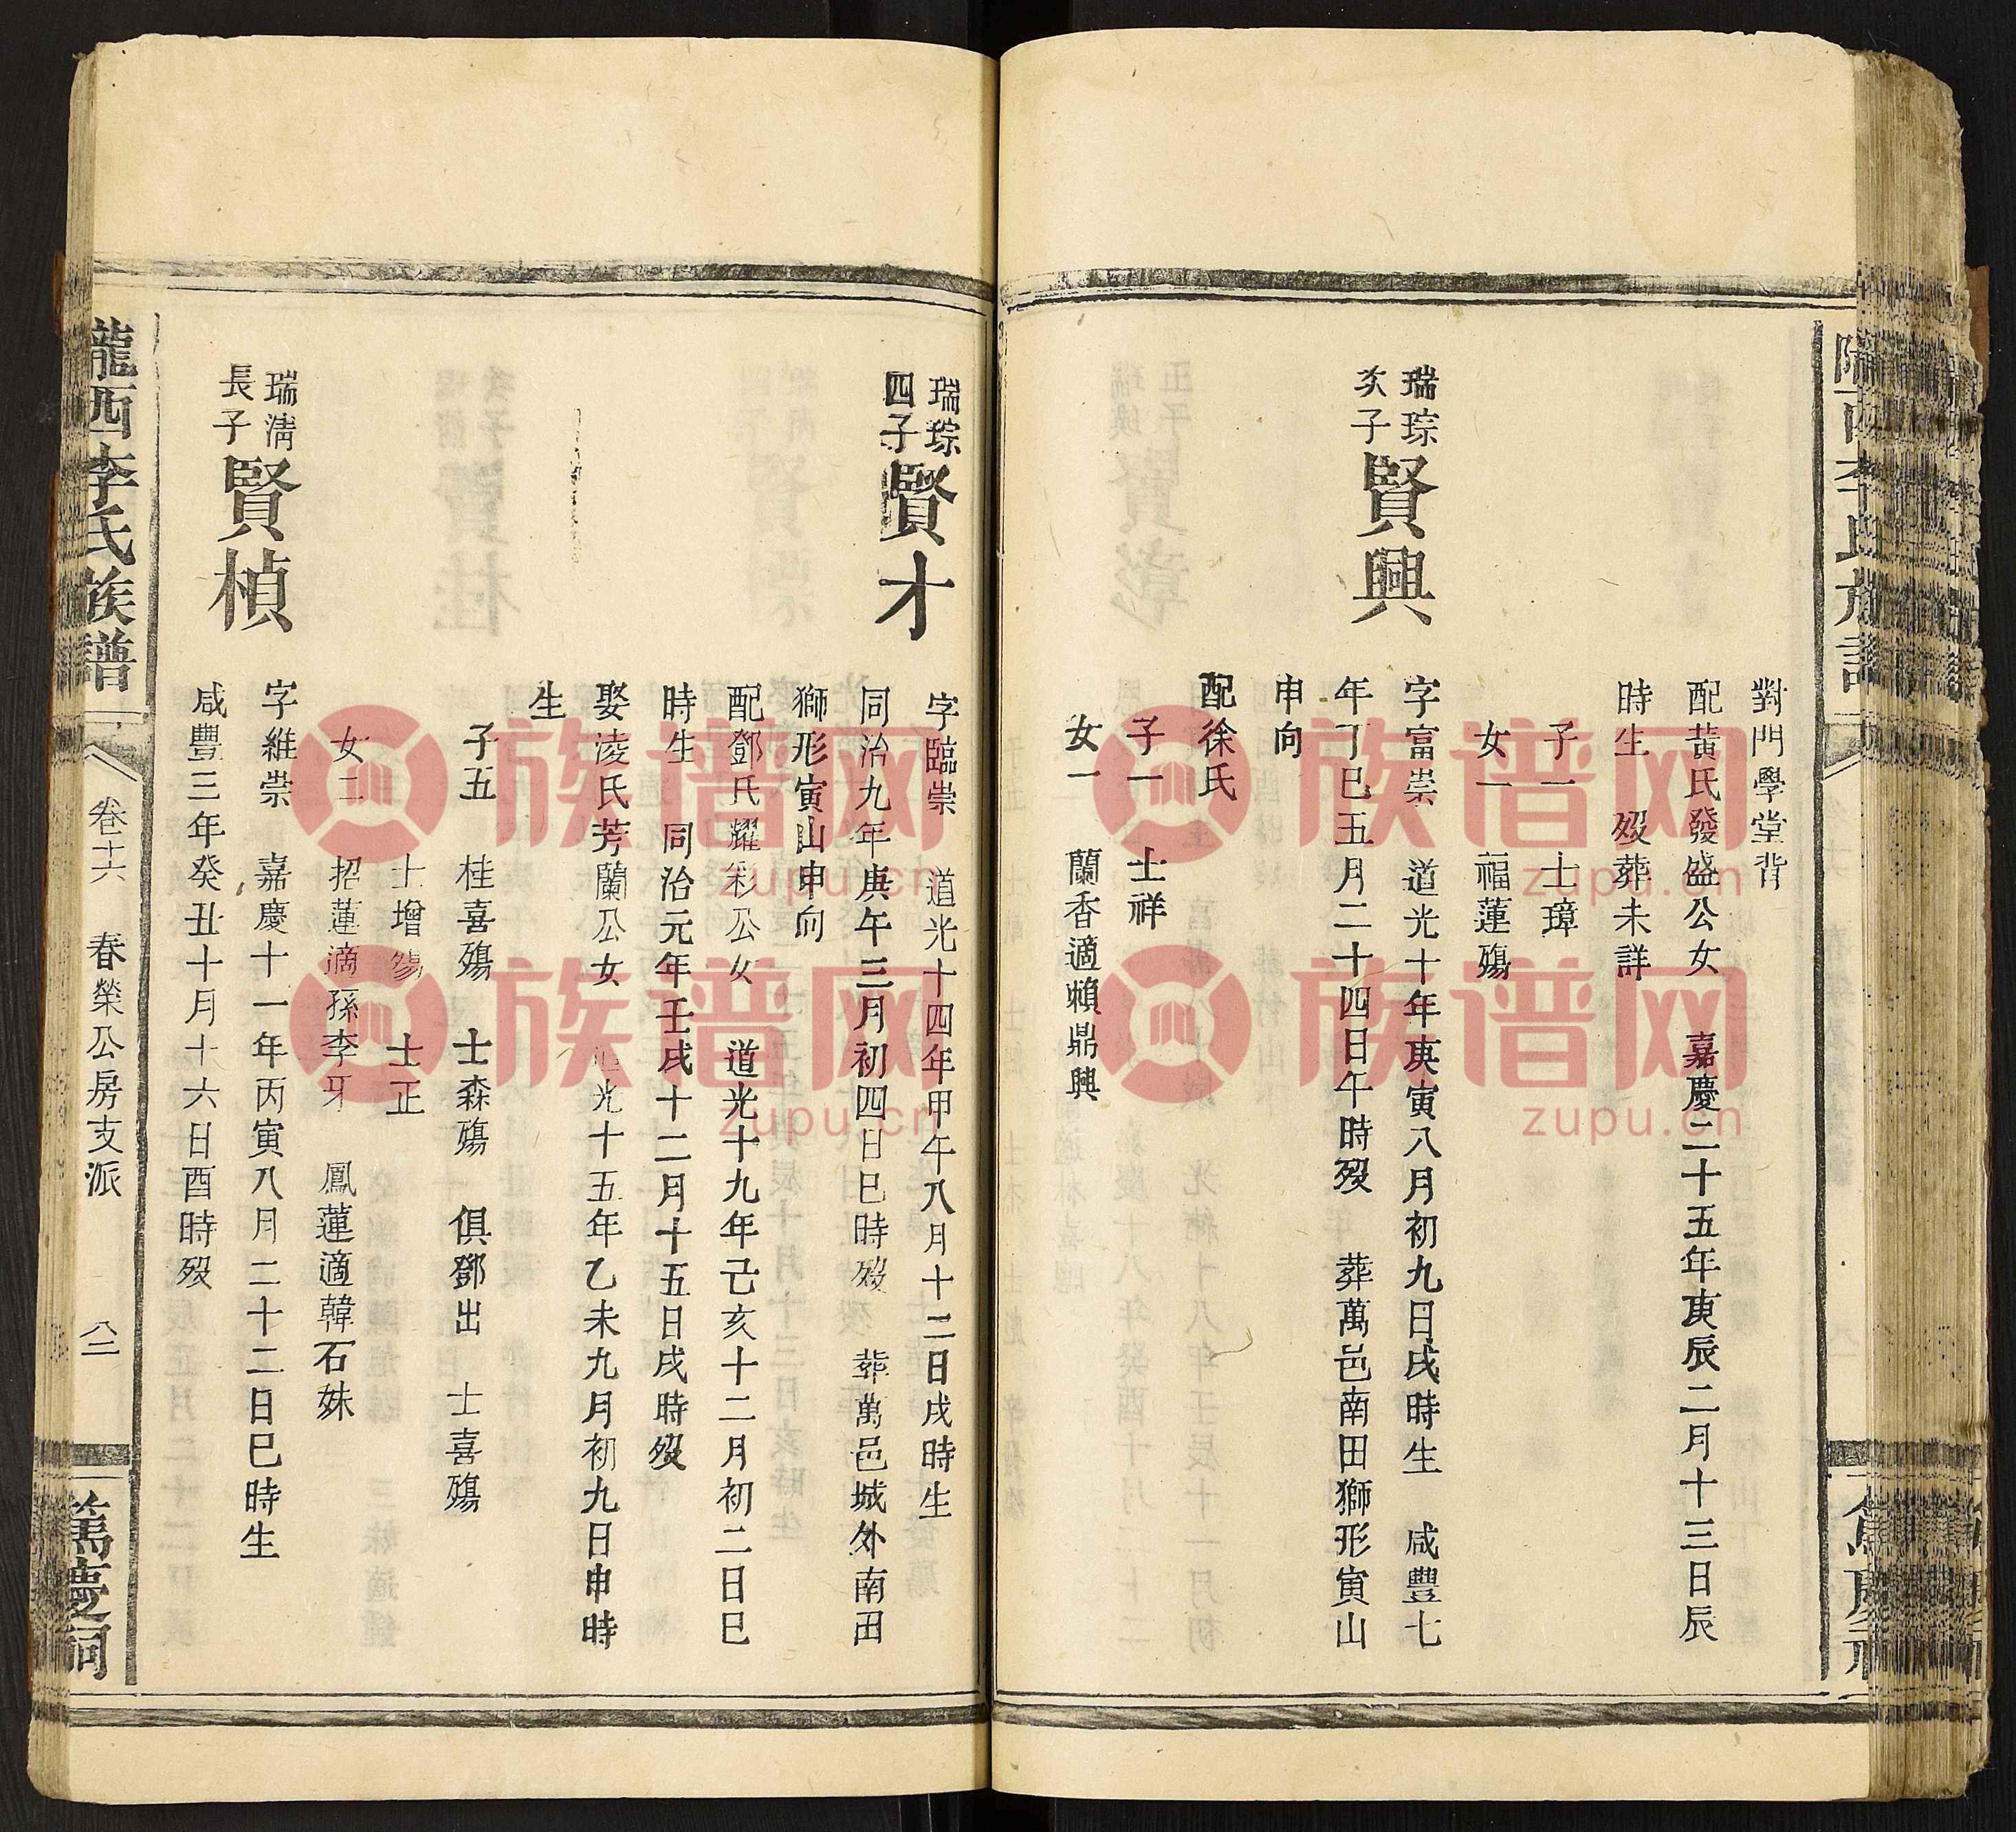 對門學堂背
配黃氏發盛公女 嘉慶二十五年庚辰二月十三日辰
時生 歿葬未詳
子一 士璋
女一 福蓮殤
瑞琮
次子
賢興
字富崇 道光十年庚寅八月初九日戌時生 咸豐七
年丁巳五月二十四日午時歿 葬萬邑南田獅形寅山
申向
配徐氏
子一 士祥
女一 蘭香適賴鼎興
瑞琮
四子
賢才
字臨崇 道光十四年甲午八月十二日戌時生
同治九年庚午三月初四日巳時歿 葬萬邑城外南田
獅形寅山申向
配鄧氏耀彩公女 道光十九年己亥十二月初二日巳
時生 同治元年壬戌十二月十五日戌時歿
娶淩氏芳蘭公女 道光十五年乙未九月初九日申時
生
子五 桂喜殤 士森殤 俱鄧出 士喜殤
士增殤 士正
女二 招蓮適孫李牙 鳳蓮適韓石妹
瑞清
長子
賢楨
字維崇 嘉慶十一年丙寅八月二十二日巳時生
咸豐三年癸丑十月十六日酉時歿
隴西李氏族譜 卷十六 春榮公房支派 八二 篤慶祠
族谱网
zupu.cn
族谱网
zupu.cn
族谱网
zupu.cn
族谱网
zupu.cn